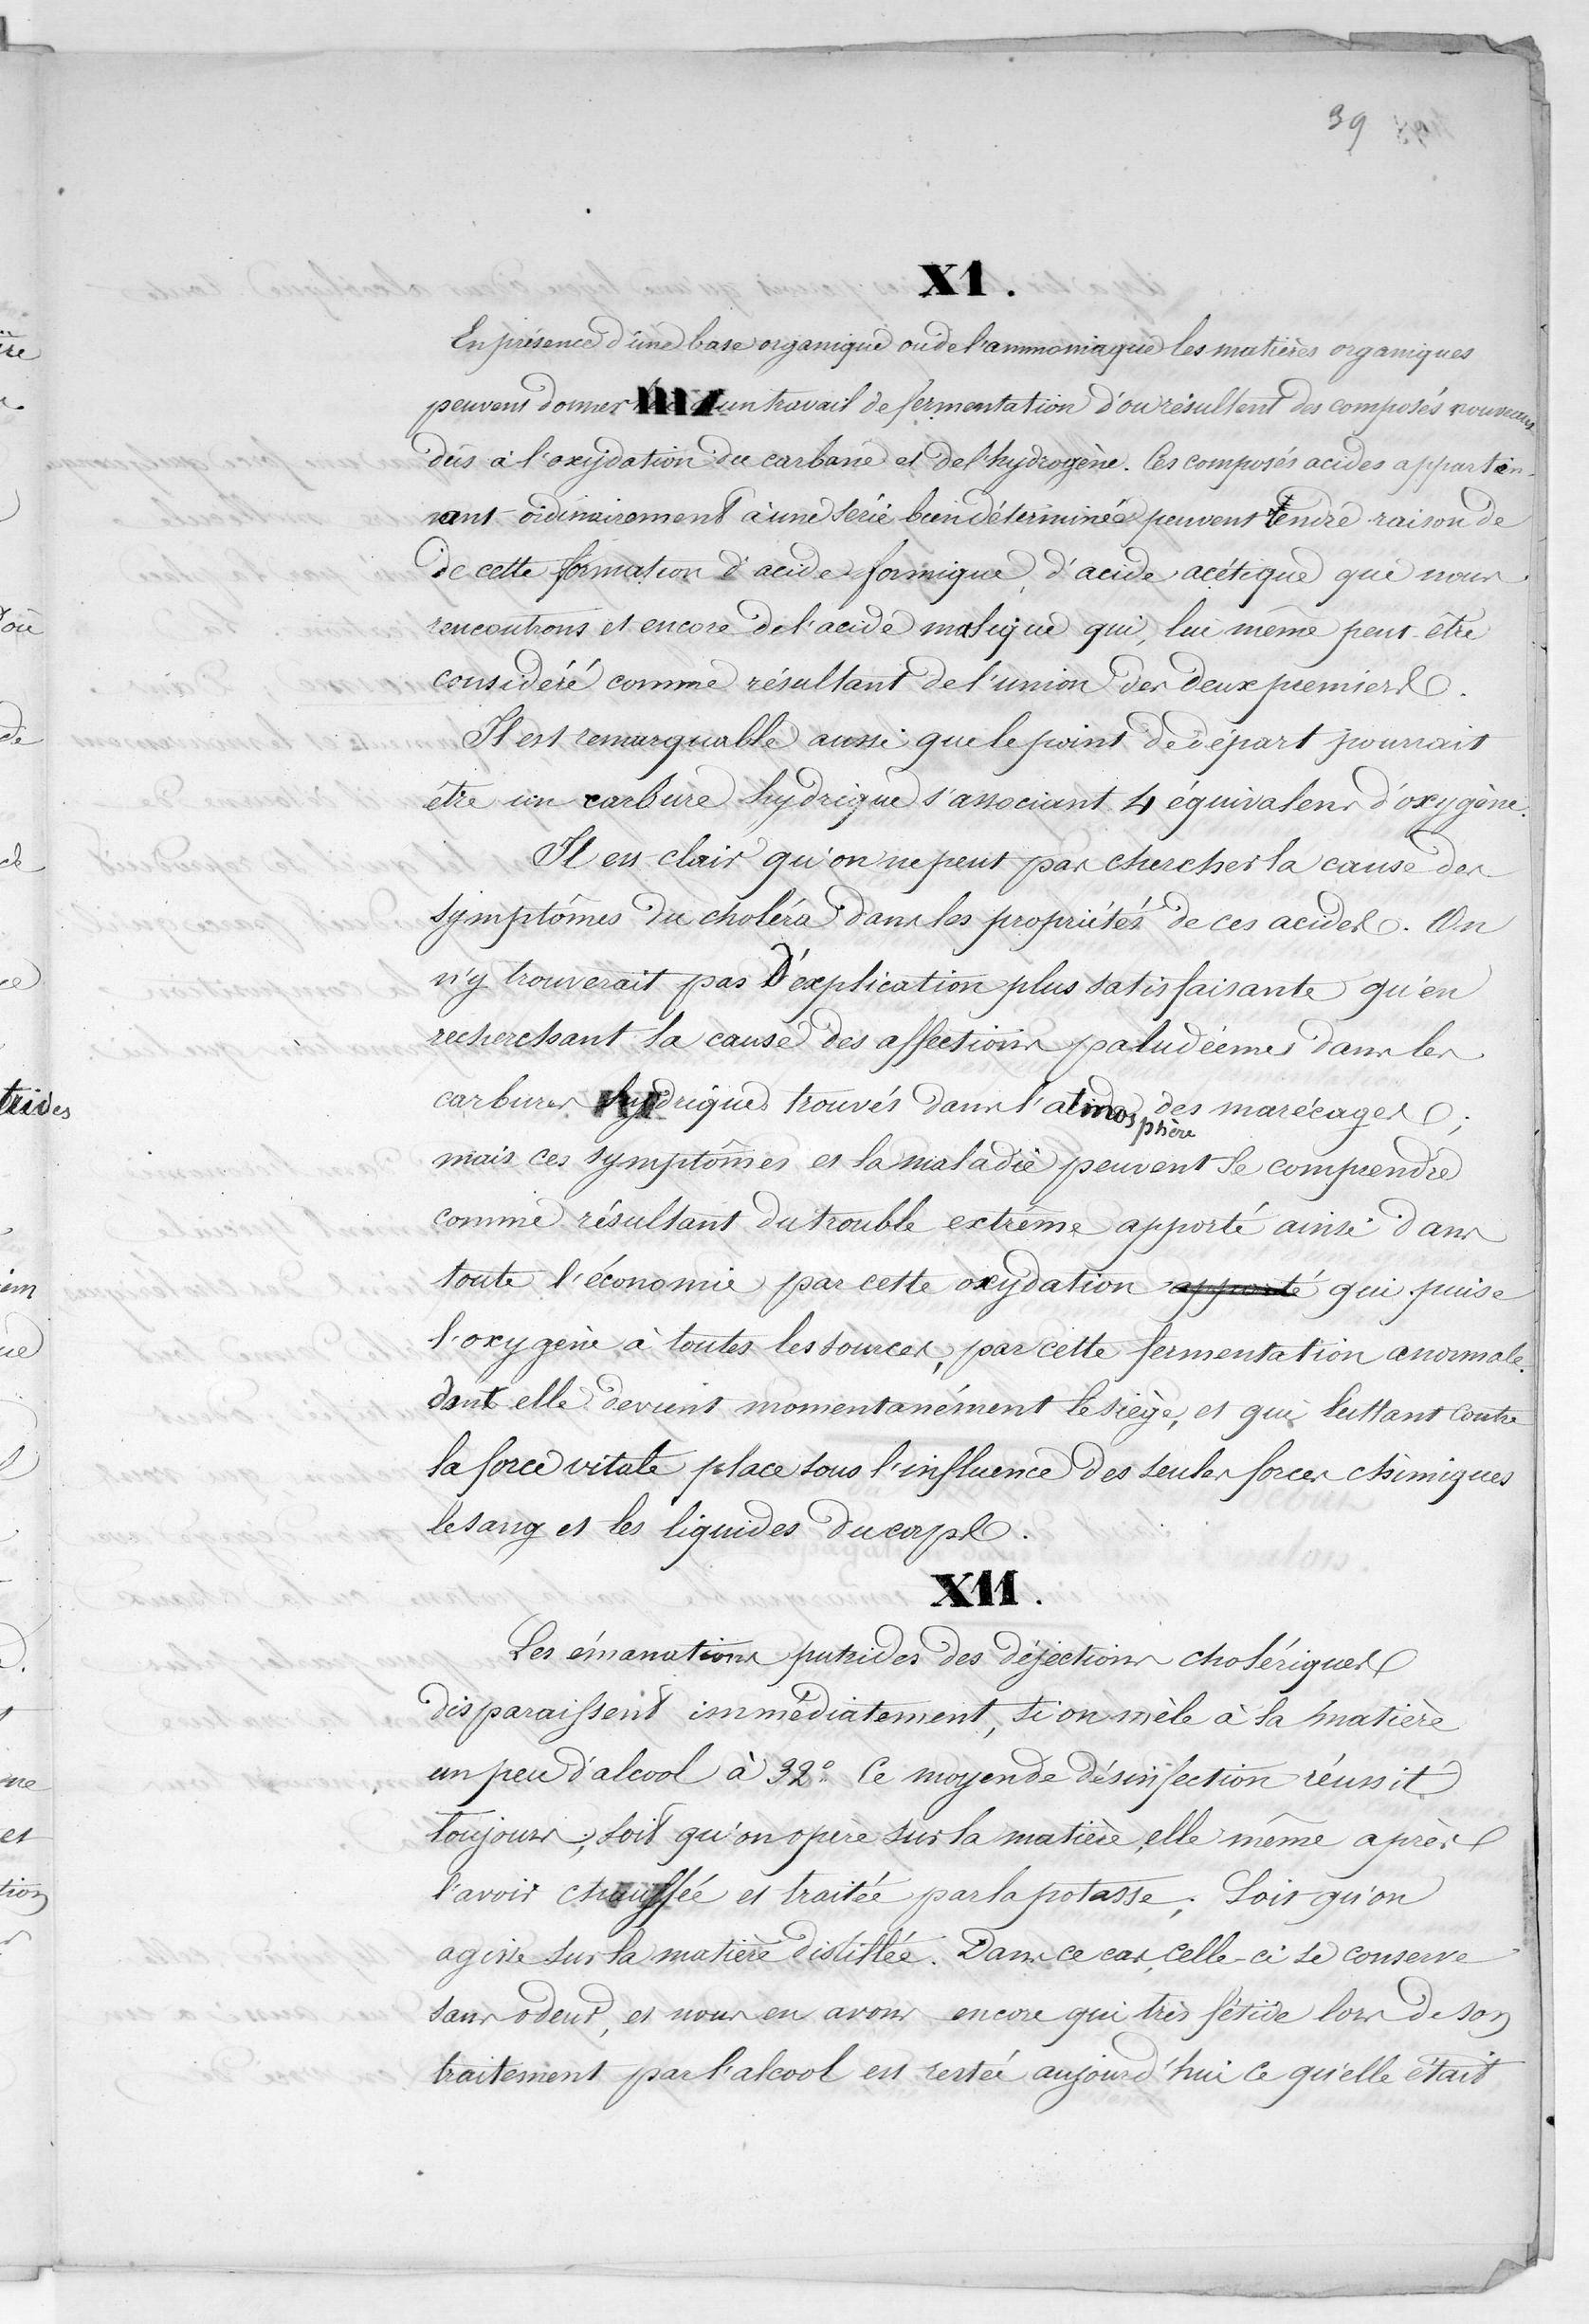 39
X1.
En présence d'une base organique ou de l'ammoniaque les matières organiques
peuvent donner un travail de fermentation d'où résultent des composés nouveaux
dûs à l'oxydation du carbone et de l'hydrogène. Ces composés acides apparten-
nant ordinairement à une série bien déterminée peuvent rendre raison de
de cette formation d'acide formique, d'acide acétique que nous
rencontrons et encore de l'acide malique qui, lui même peut être
considéré comme résultant de l'union des deux premiers.
Il est remarquable aussi que le point de départ pourrait
être un carbure hydrique s'associant 4 équivalens d'oxygène.
Il est clair qu'on ne peut pas chercher la cause des
symptômes du choléra dans les propriétés de ces acides. On
n'y trouverait pas d'explication plus satisfaisante qu'en
recherchant la cause des affections paludéennes dans les
carbures hydriques trouvés dans l'atmosphère des marécages ;
mais ces symptômes et la maladie peuvent se comprendre
comme résultant du trouble extrême apporté ainsi dans
toute l'économie par cette oxydation apporté qui puise
l'oxygène à toutes les sources, par cette fermentation anormale.
dont elle devient momentanément le siège, et qui luttant contre
la force vitale place sous l'influence des seules forces chimiques
le sang et les liquides du corps.
X11.
Les émanations putrides des déjections cholériques
disparaissent immédiatement, si on mèle à la matière
un peu d'alcool à 32° Ce moyen de désinfection réussit
toujours ; soit qu'on opere sur la matière elle même après
l'avoir chauffée et traitée par la potasse ; Soit qu'on
agisse sur la matière distillée. Dans ce cas, celle-ci se conserve
sans odeur, et nous en avons encore qui très fétide lors de son
traitement par l'alcool est restée aujourd'hui ce qu'elle était